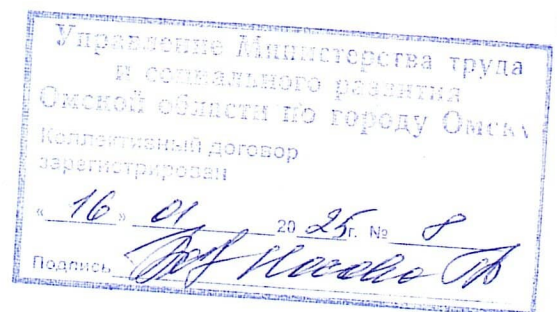 Управление Министерства труда
и социального развития
Омской области по городу Омску
Коллективный договор
зарегистрирован
« 16 » 01 20 25г. № 8
Подпись